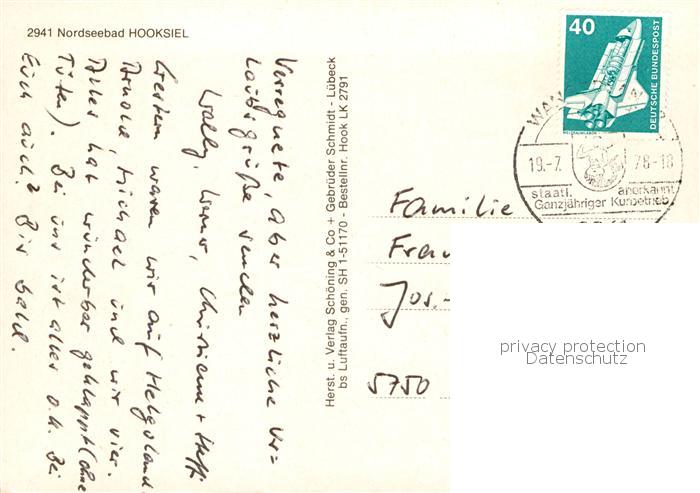 2941 Nordseebad HOOKSIEL
Verregnete, aber herzliche Ur=
laubsgrüße senden
Wally, Werner, Christiane + Steffi
Gestern waren wir auf Helgoland.
Arnold, Michael und wir vier.
Alles hat wunderbar geklappt (ohne
Tüten). Bei uns ist alles o.k. Bei
Euch auch? Bis bald.
Herst. u. Verlag Schöning & Co + Gebrüder Schmidt - Lübeck
bs Luftaufn., gen. SH 1-51170 - Bestellnr. Hook LK 2791
40
DEUTSCHE BUNDESPOST
WAN
19.-7. 78-18
staatl. anerkannt
Ganzjähriger Kurbetrieb
Familie
Fra
Jos.-
5750
privacy protection
Datenschutz